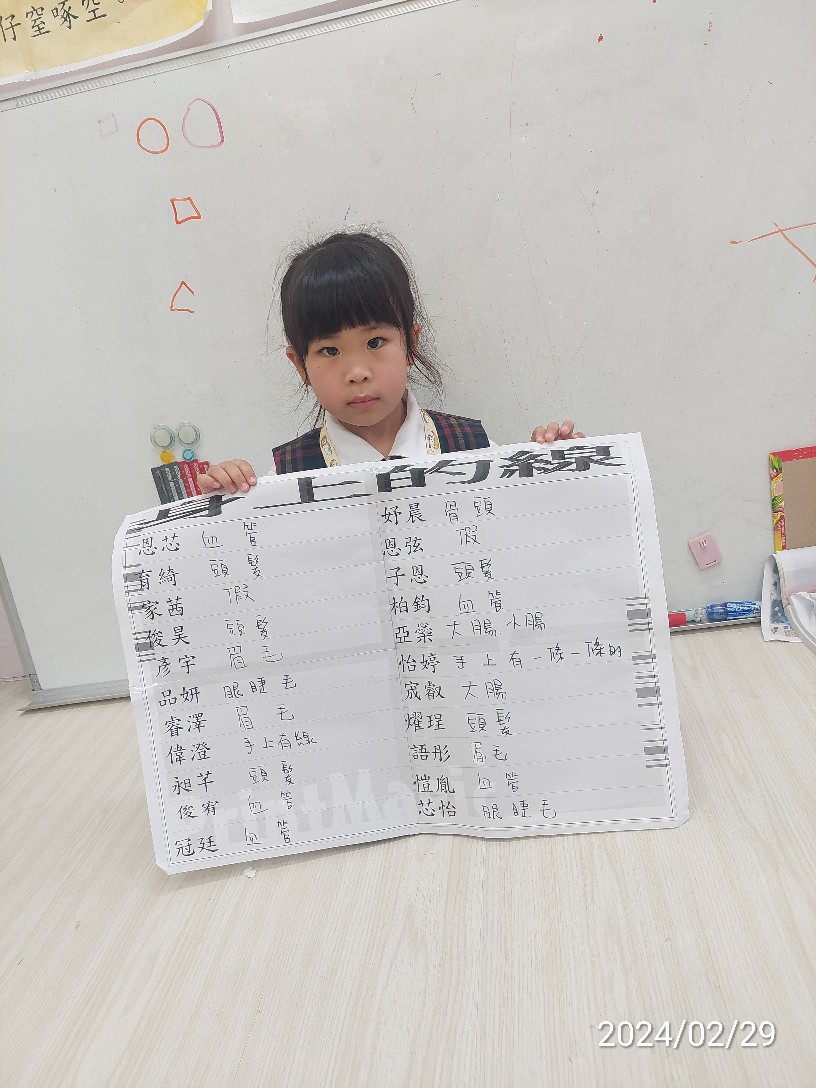 仔窒啄空。
身上的線
恩芯 血管
育綺 頭髮
家茜 假
俊昊 頭髮
彥宇 眉毛
品妍 眼睫毛
睿澤 眉毛
偉澄 手上有線
昶芊 頭髮
俊宥 血管
冠廷 血管
妤晨 骨頭
恩弦 假
子恩 頭髮
柏鈞 血管
亞榮 大腸 小腸
怡婷 手上有一條一條的
宬叡 大腸
燿珵 頭髮
語彤 眉毛
愷胤 血管
芯怡 眼睫毛
2024/02/29